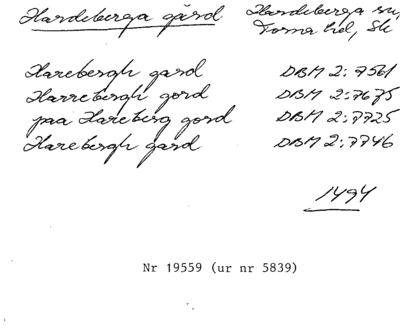 Hardeberga gård Hardeberga sn,
Torna hd, Sk
Harebergh gard DBM 2:7561
Harrebergh gord DBM 2:7675
paa Hareberg gord DBM 2:7725
Harebergh gard DBM 2:7746
1494
Nr 19559 (ur nr 5839)